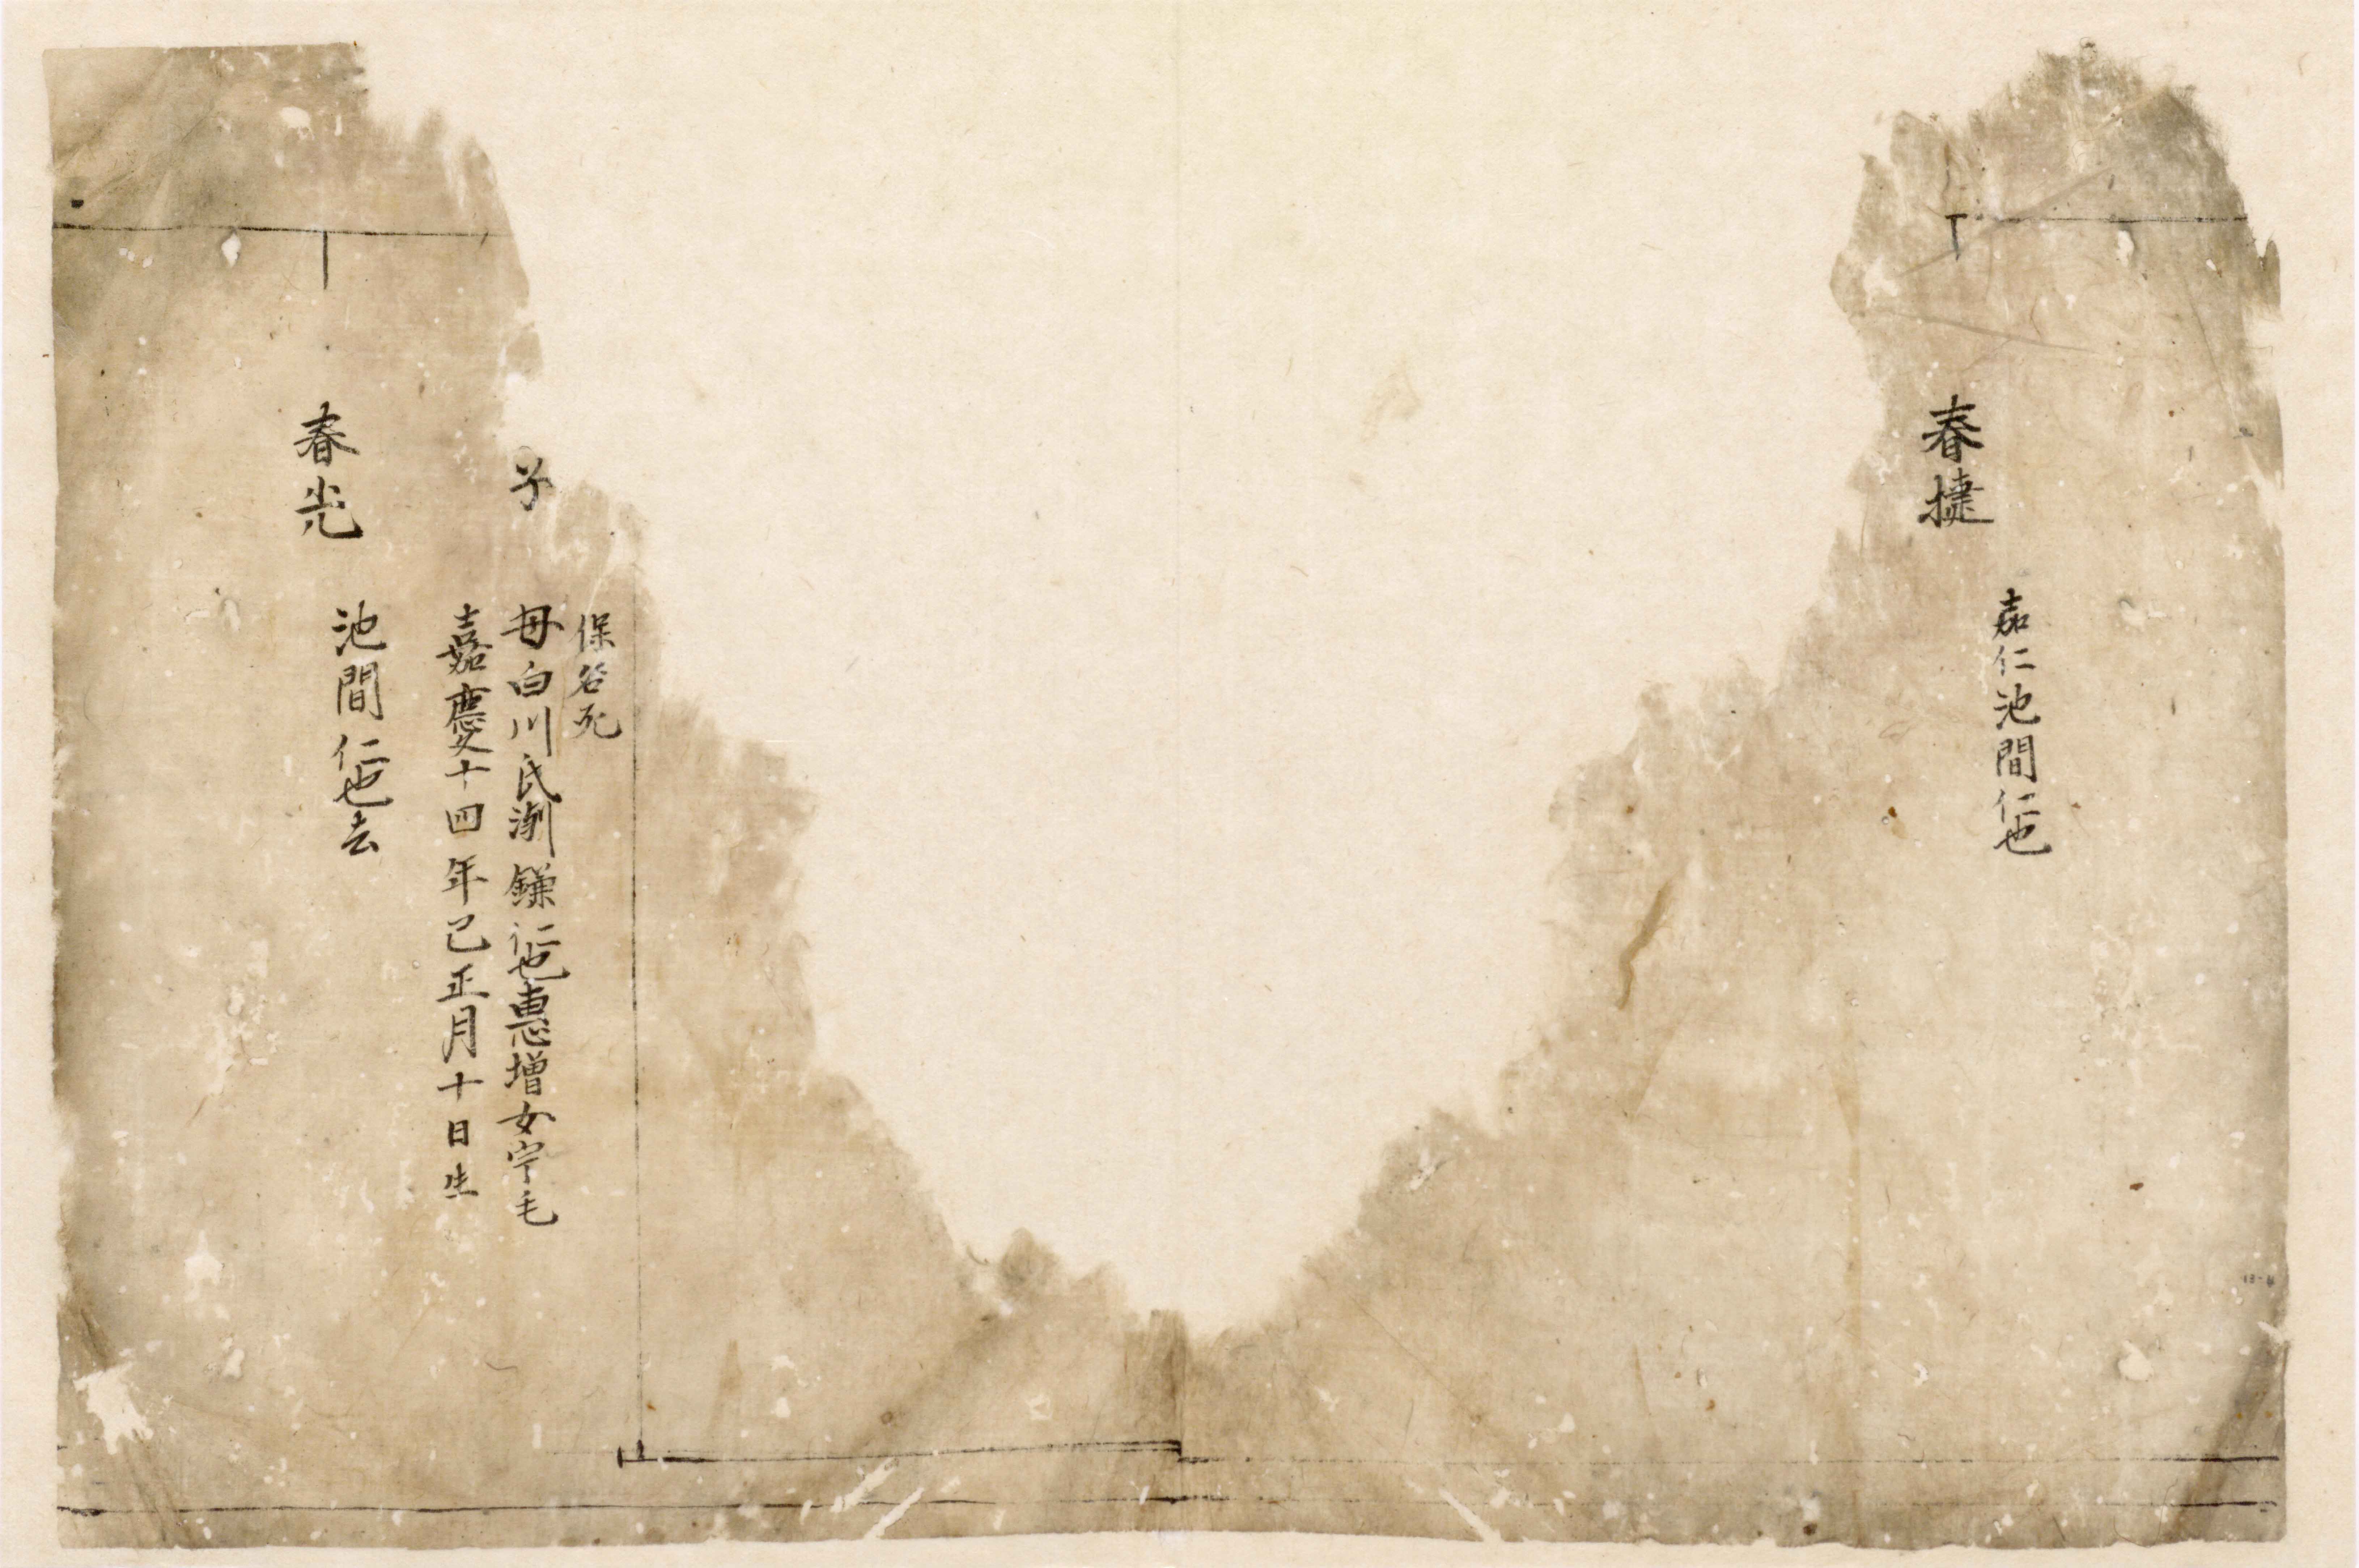 春捷
嘉仁池間仁也
保谷死
母白川氏渕鎌仁也惠增女宇毛
嘉慶十四年己正月十日生
春光
池間仁也去